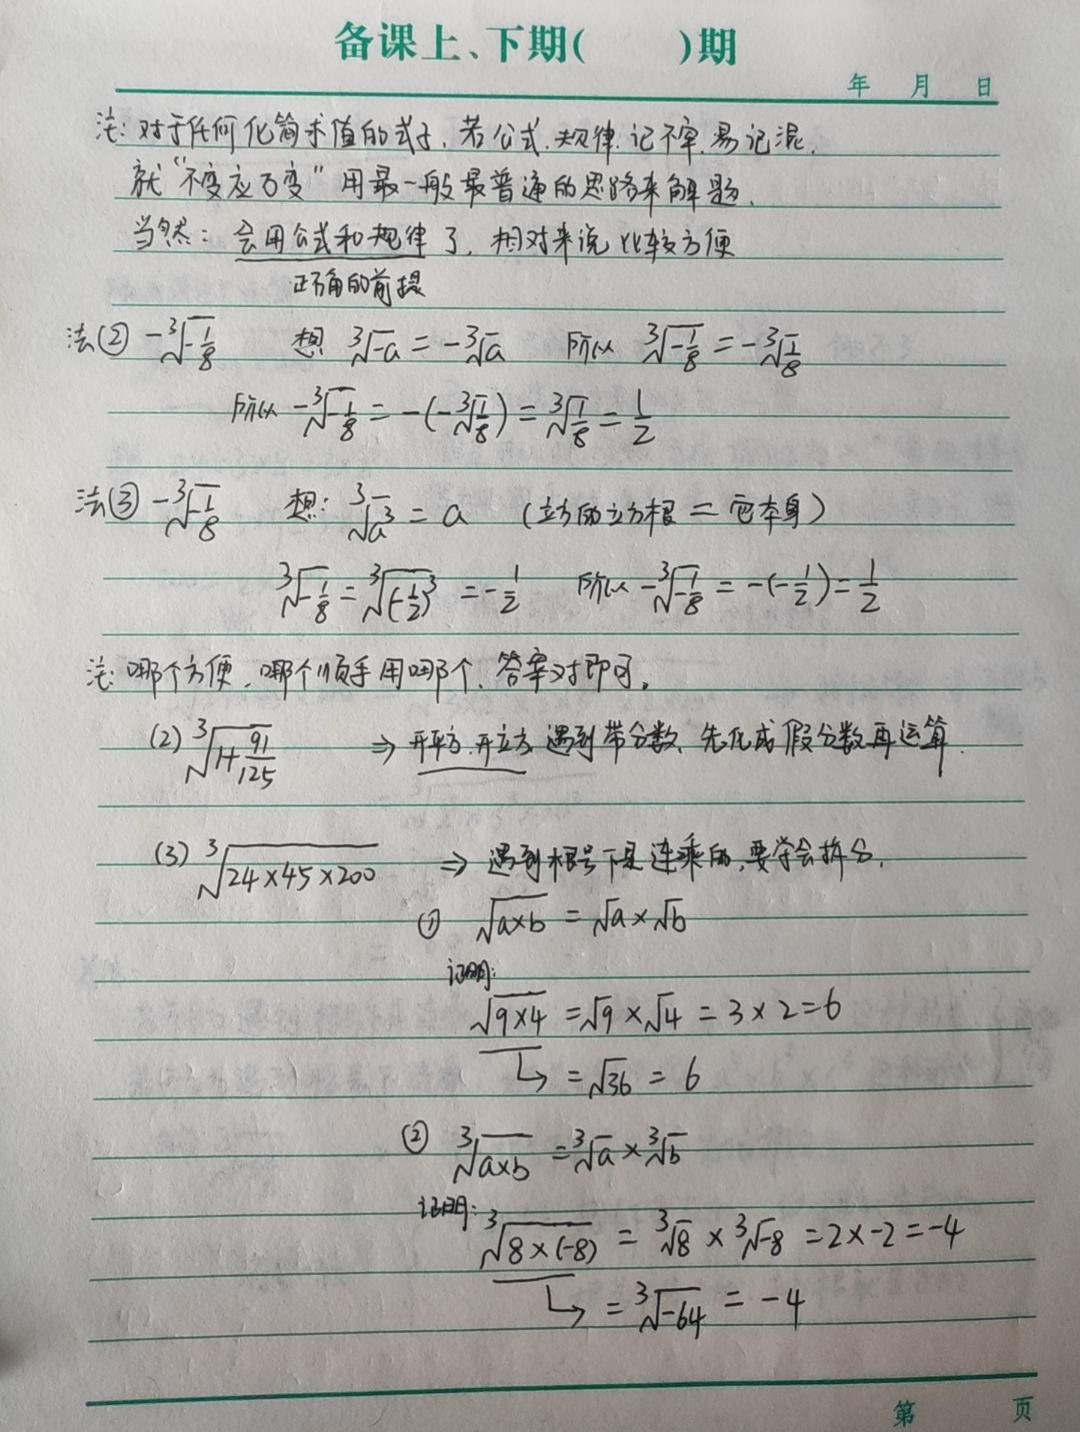 备课上、下期(　　)期
年　月　日
注:对于任何化简求值的式子,若公式、规律记不牢,易记混,
就“不变应万变”用最一般最普遍的思路来解题.
当然:会用公式和规律了,相对来说比较方便
正确的前提
法② -∛(-1/8)　想 ∛-a = -∛a　所以 ∛(-1/8) = -∛(1/8)
所以 -∛(-1/8) = -(-∛(1/8)) = ∛(1/8) = 1/2
法③ -∛(-1/8)　想: ∛a³ = a　(立方的立方根 = 它本身)
∛(-1/8) = ∛(-1/2)³ = -1/2　所以 -∛(-1/8) = -(-1/2) = 1/2
注:哪个方便,哪个顺手用哪个,答案对即可.
(2) ∛(1+91/125)　⇒ 开平方、开立方遇到带分数、先化成假分数再运算.
(3) ∛(24×45×200)　⇒ 遇到根号下是连乘的,要学会拆分.
① √(a×b) = √a × √b
证明:
√(9×4) = √9 × √4 = 3×2 = 6
↳ = √36 = 6
② ∛(a×b) = ∛a × ∛b
证明:
∛(8×(-8)) = ∛8 × ∛-8 = 2×-2 = -4
↳ = ∛-64 = -4
第　页